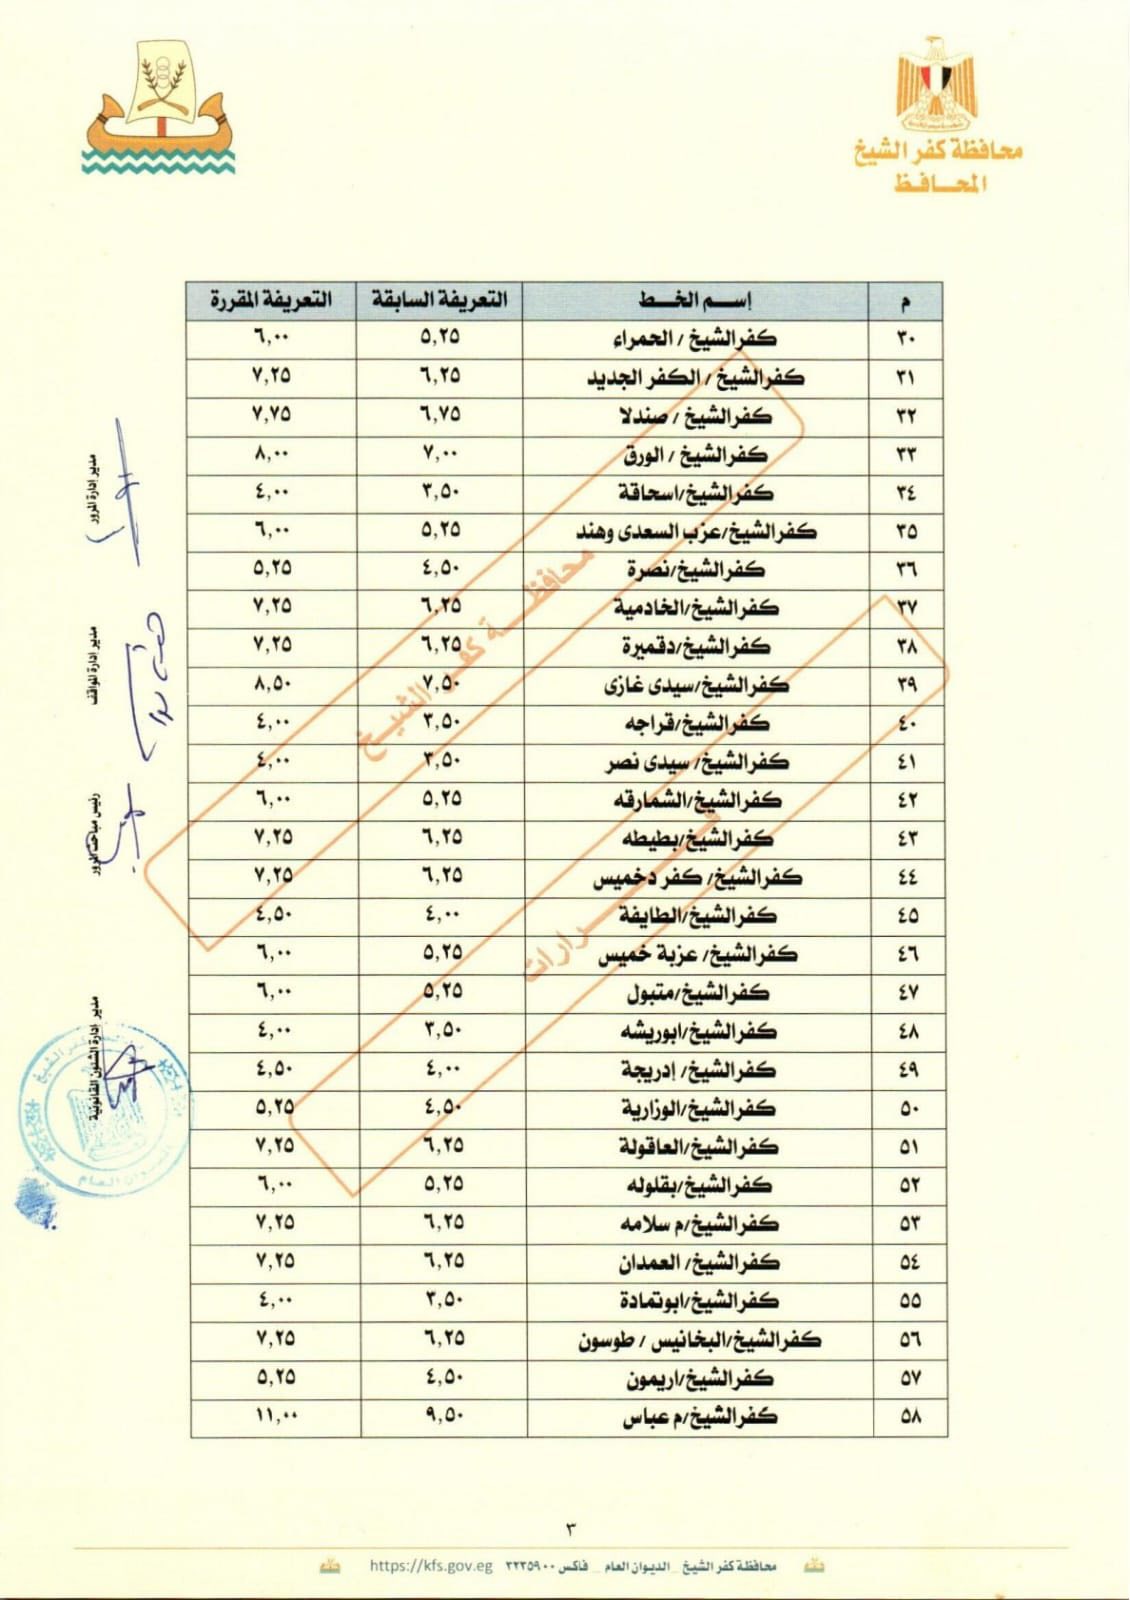 محافظة كفر الشيخ
المحافظ
م إسم الخط التعريفة السابقة التعريفة المقررة
٣٠ كفرالشيخ / الحمراء ٥,٢٥ ٦,٠٠
٣١ كفرالشيخ / الكفر الجديد ٦,٢٥ ٧,٢٥
٣٢ كفرالشيخ / صندلا ٦,٧٥ ٧,٧٥
٣٣ كفرالشيخ / الورق ٧,٠٠ ٨,٠٠
٣٤ كفرالشيخ/اسحاقة ٣,٥٠ ٤,٠٠
٣٥ كفرالشيخ/عزب السعدى وهند ٥,٢٥ ٦,٠٠
٣٦ كفرالشيخ/نصرة ٤,٥٠ ٥,٢٥
٣٧ كفرالشيخ/الخادمية ٦,٢٥ ٧,٢٥
٣٨ كفرالشيخ/دقميرة ٦,٢٥ ٧,٢٥
٣٩ كفرالشيخ/سيدى غازى ٧,٥٠ ٨,٥٠
٤٠ كفرالشيخ/قراجه ٣,٥٠ ٤,٠٠
٤١ كفرالشيخ/ سيدى نصر ٣,٥٠ ٤,٠٠
٤٢ كفرالشيخ/الشمارقه ٥,٢٥ ٦,٠٠
٤٣ كفرالشيخ/بطيطه ٦,٢٥ ٧,٢٥
٤٤ كفرالشيخ/ كفر دخميس ٦,٢٥ ٧,٢٥
٤٥ كفرالشيخ/الطايفة ٤,٠٠ ٤,٥٠
٤٦ كفرالشيخ/ عزبة خميس ٥,٢٥ ٦,٠٠
٤٧ كفرالشيخ/متبول ٥,٢٥ ٦,٠٠
٤٨ كفرالشيخ/ابوريشه ٣,٥٠ ٤,٠٠
٤٩ كفرالشيخ/ إدريجة ٤,٠٠ ٤,٥٠
٥٠ كفرالشيخ/الوزارية ٤,٥٠ ٥,٢٥
٥١ كفرالشيخ/العاقولة ٦,٢٥ ٧,٢٥
٥٢ كفرالشيخ/بقلوله ٥,٢٥ ٦,٠٠
٥٣ كفرالشيخ/م سلامه ٦,٢٥ ٧,٢٥
٥٤ كفرالشيخ/ العمدان ٦,٢٥ ٧,٢٥
٥٥ كفرالشيخ/ابوتمادة ٣,٥٠ ٤,٠٠
٥٦ كفرالشيخ/البخانيس / طوسون ٦,٢٥ ٧,٢٥
٥٧ كفرالشيخ/اريمون ٤,٥٠ ٥,٢٥
٥٨ كفرالشيخ/م عباس ٩,٥٠ ١١,٠٠
محافظة كفر الشيخ
قرارات
مدير إدارة المرور
مدير إدارة المواقف
رئيس مباحث المرور
مدير إدارة الشئون القانونية
كفر الشيخ
الديوان العام
٣
محافظة كفر الشيخ _ الديوان العام _ فاكس ٣٢٣٥٩٠٠ https://kfs.gov.eg